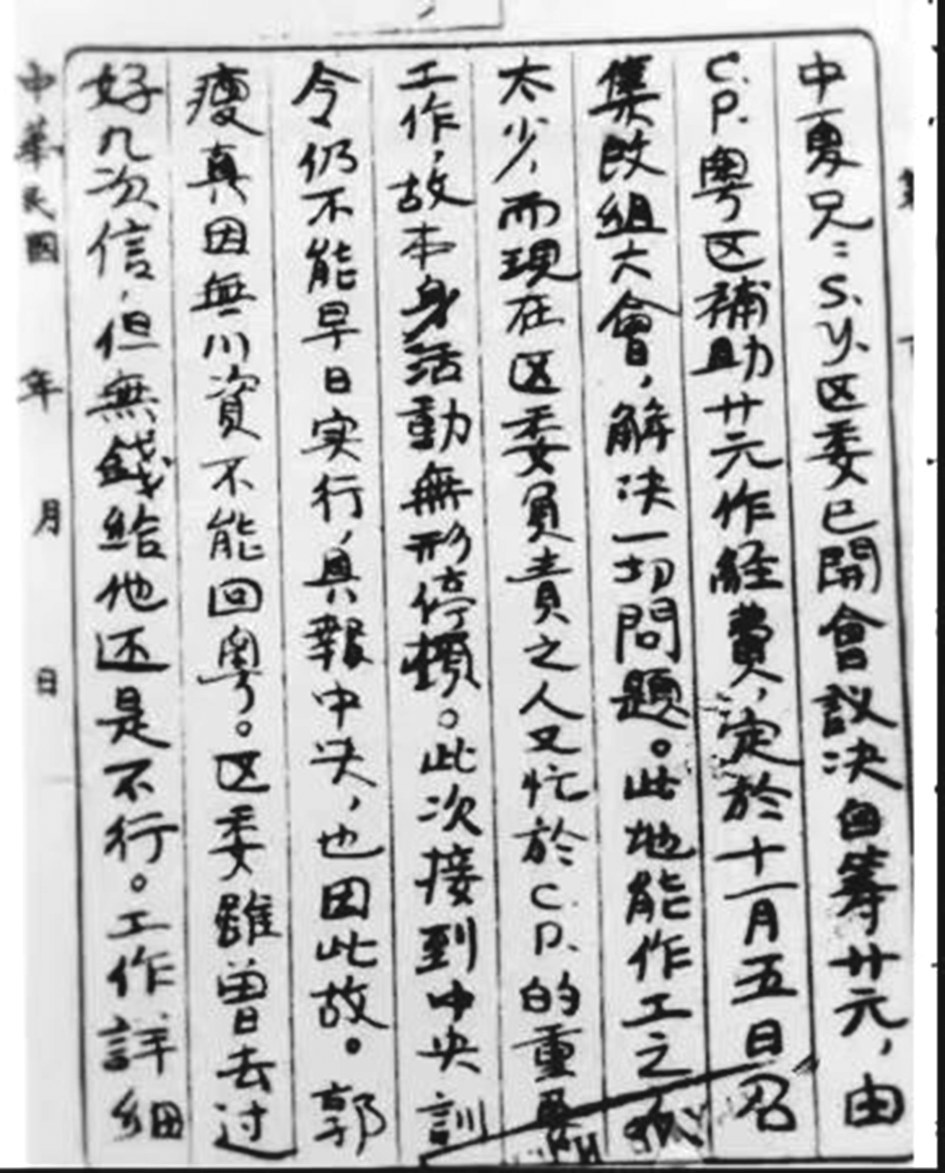 中夏兄：S.Y.区委已開會議決自筹廿元，由
C.P.粤区補助廿元作経費，定於十一月五日召
集改組大會，解决一切問題。此地能作工之
太少，而現在区委負責之人又忙於C.P.的重要
工作，故本身活動無形停頓。此次接到中央訓
令仍不能早日实行，具報中央，也因此故。郭
瘦真因無川資不能回粤。区委雖曾去过
好几次信，但無錢給他还是不行。工作詳細
中華民國 年 月 日